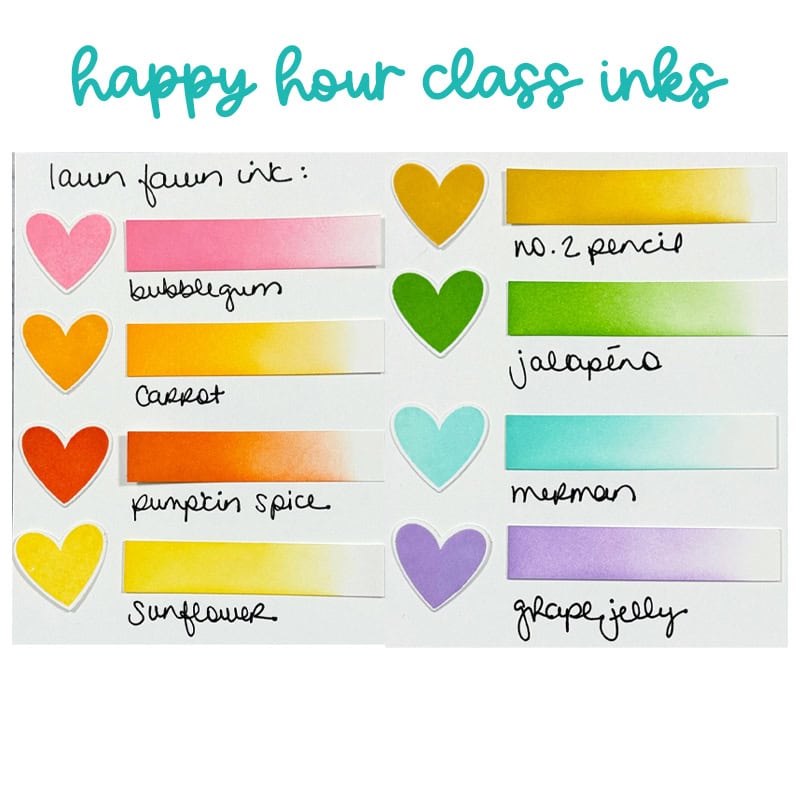 happy hour class inks
lawn fawn ink:
bubblegum
carrot
pumpkin spice
sunflower
no. 2 pencil
jalapēno
merman
grape jelly